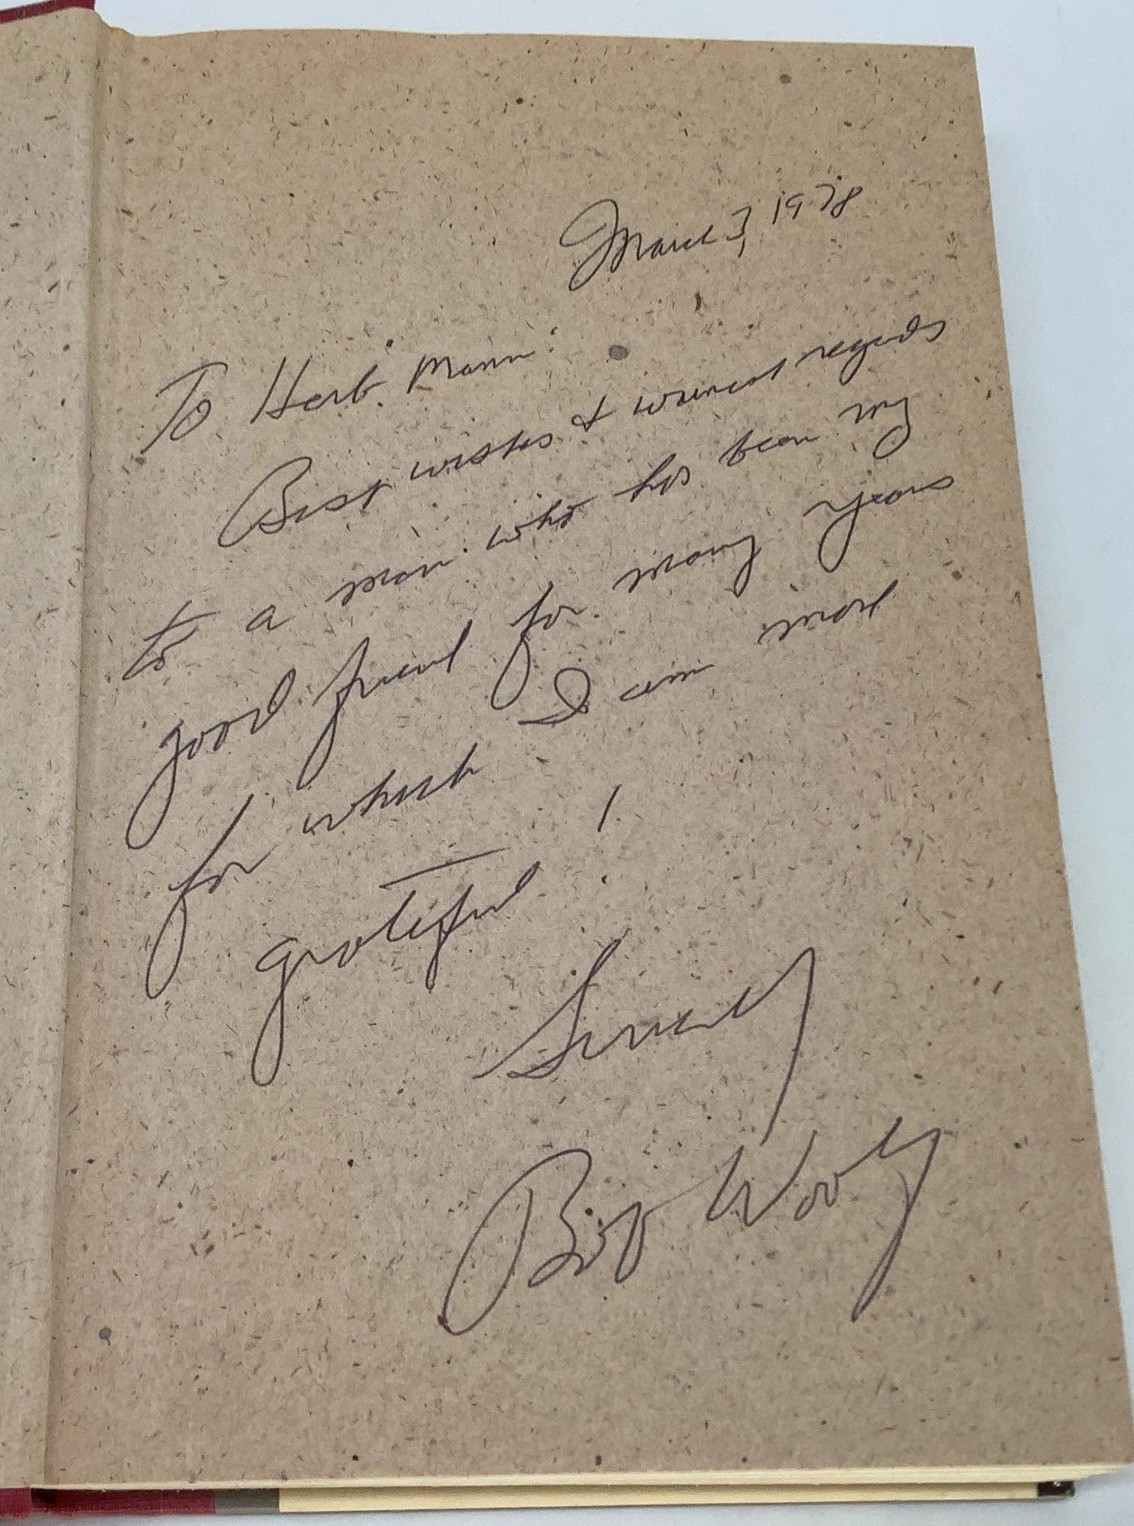 March 3, 1978
To Herb Mann:
Best wishes & warmest regards
to a man who has been my
good friend for many years
for which I am most
grateful!
Sincerely
Bob Woolf